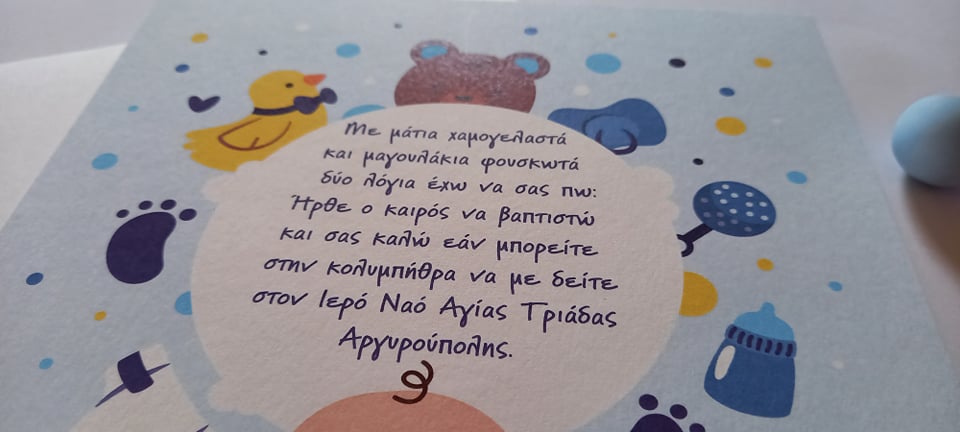 Με μάτια χαμογελαστά
και μαγουλάκια φουσκωτά
δύο λόγια έχω να σας πω:
Ήρθε ο καιρός να βαπτιστώ
και σας καλώ εάν μπορείτε
στην κολυμπήθρα να με δείτε
στον Ιερό Ναό Αγίας Τριάδας
Αργυρούπολης.